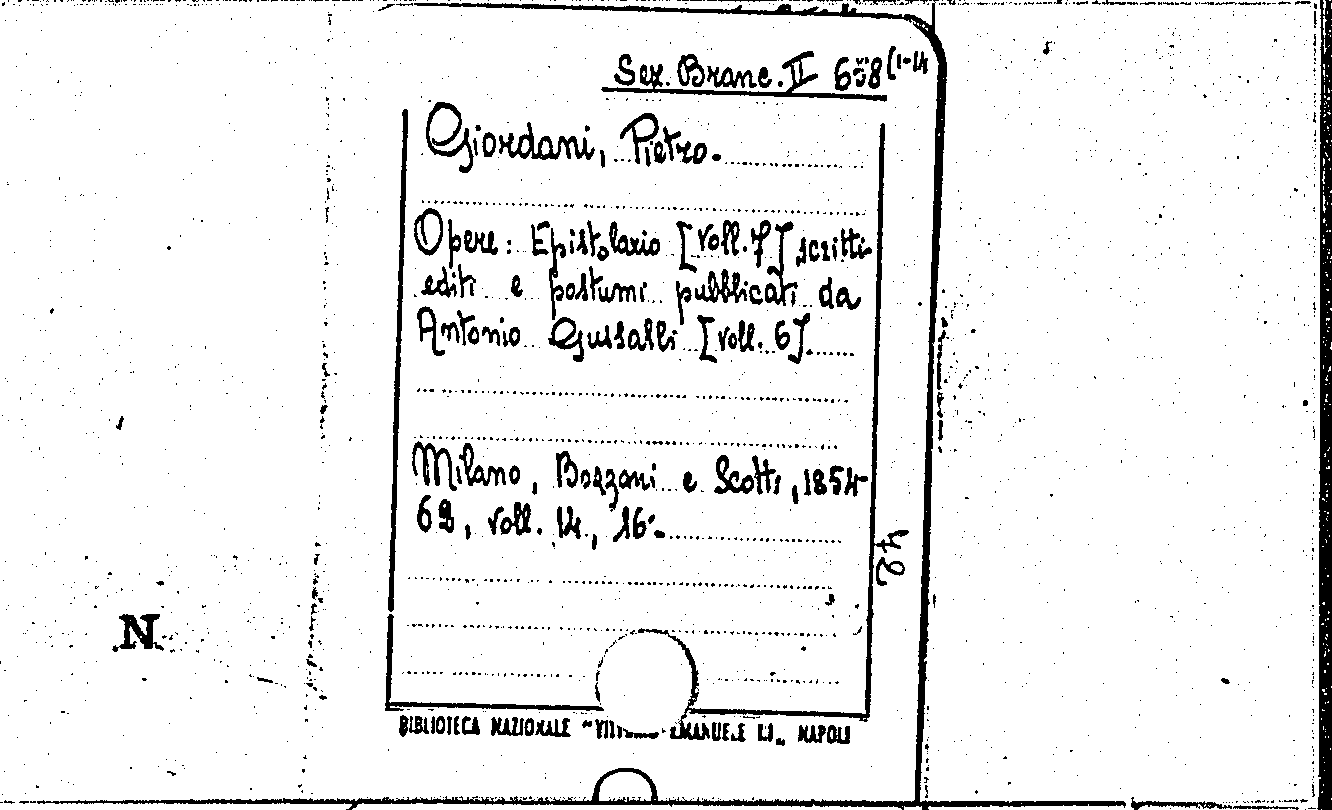 Sez. Branc. II 658 (1-14
Giordani, Pietro.
Opere: Epistolario [voll. 7] scritti
editi e postumi pubblicati da
Antonio Gussalli [voll. 6].
Milano, Borzani e Scotti, 1854-
62, voll. 14, 16°.
42
N
BIBLIOTECA NAZIONALE "VITTORIO EMANUELE III" NAPOLI